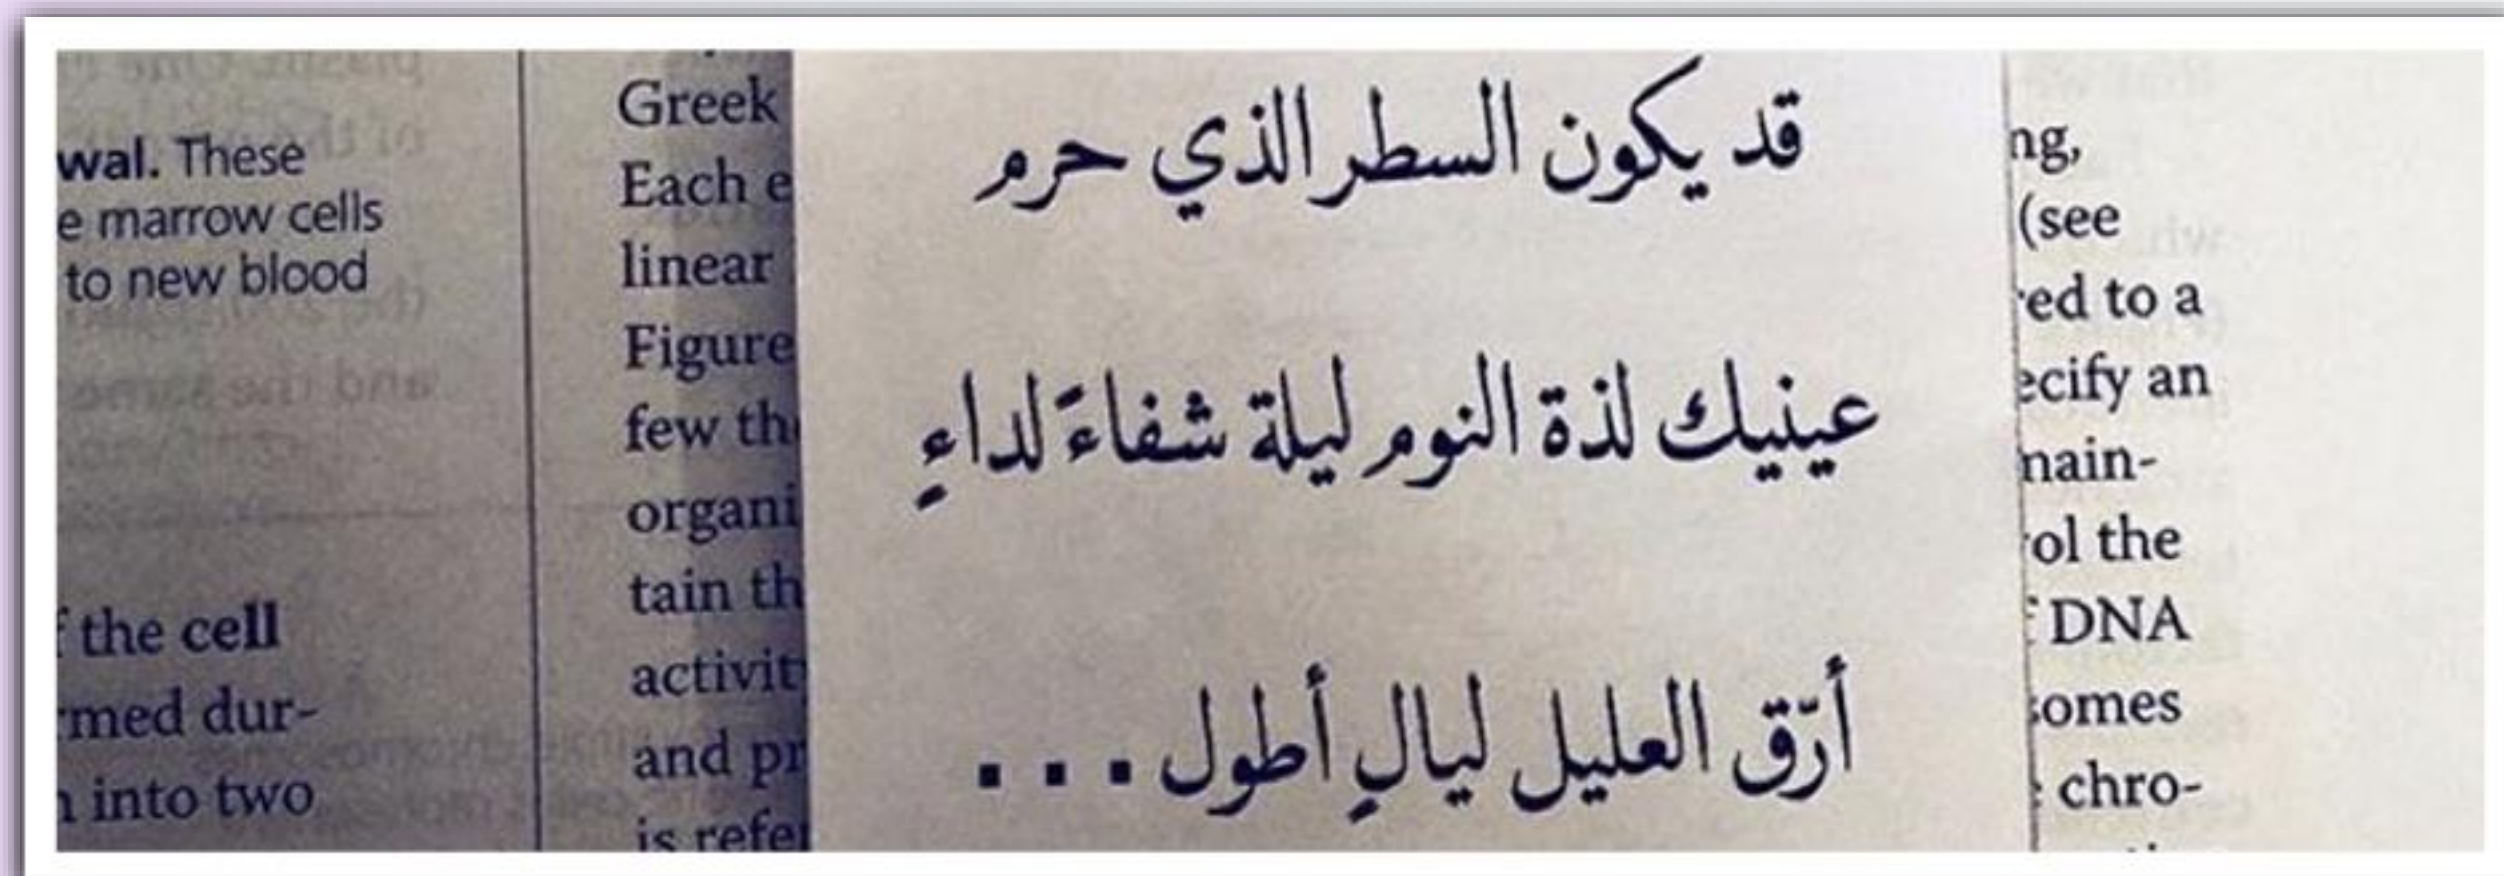 wal. These
e marrow cells
to new blood
f the cell
rmed dur-
n into two
Greek
Each e
linear
Figure
few th
organi
tain th
activit
and pr
is refer
قد يكون السطر الذي حرم
عينيك لذة النوم ليلة شفاءً لداءٍ
أرّق العليل ليالٍ أطول ...
ng,
(see
red to a
ecify an
main-
ol the
f DNA
somes
chro-